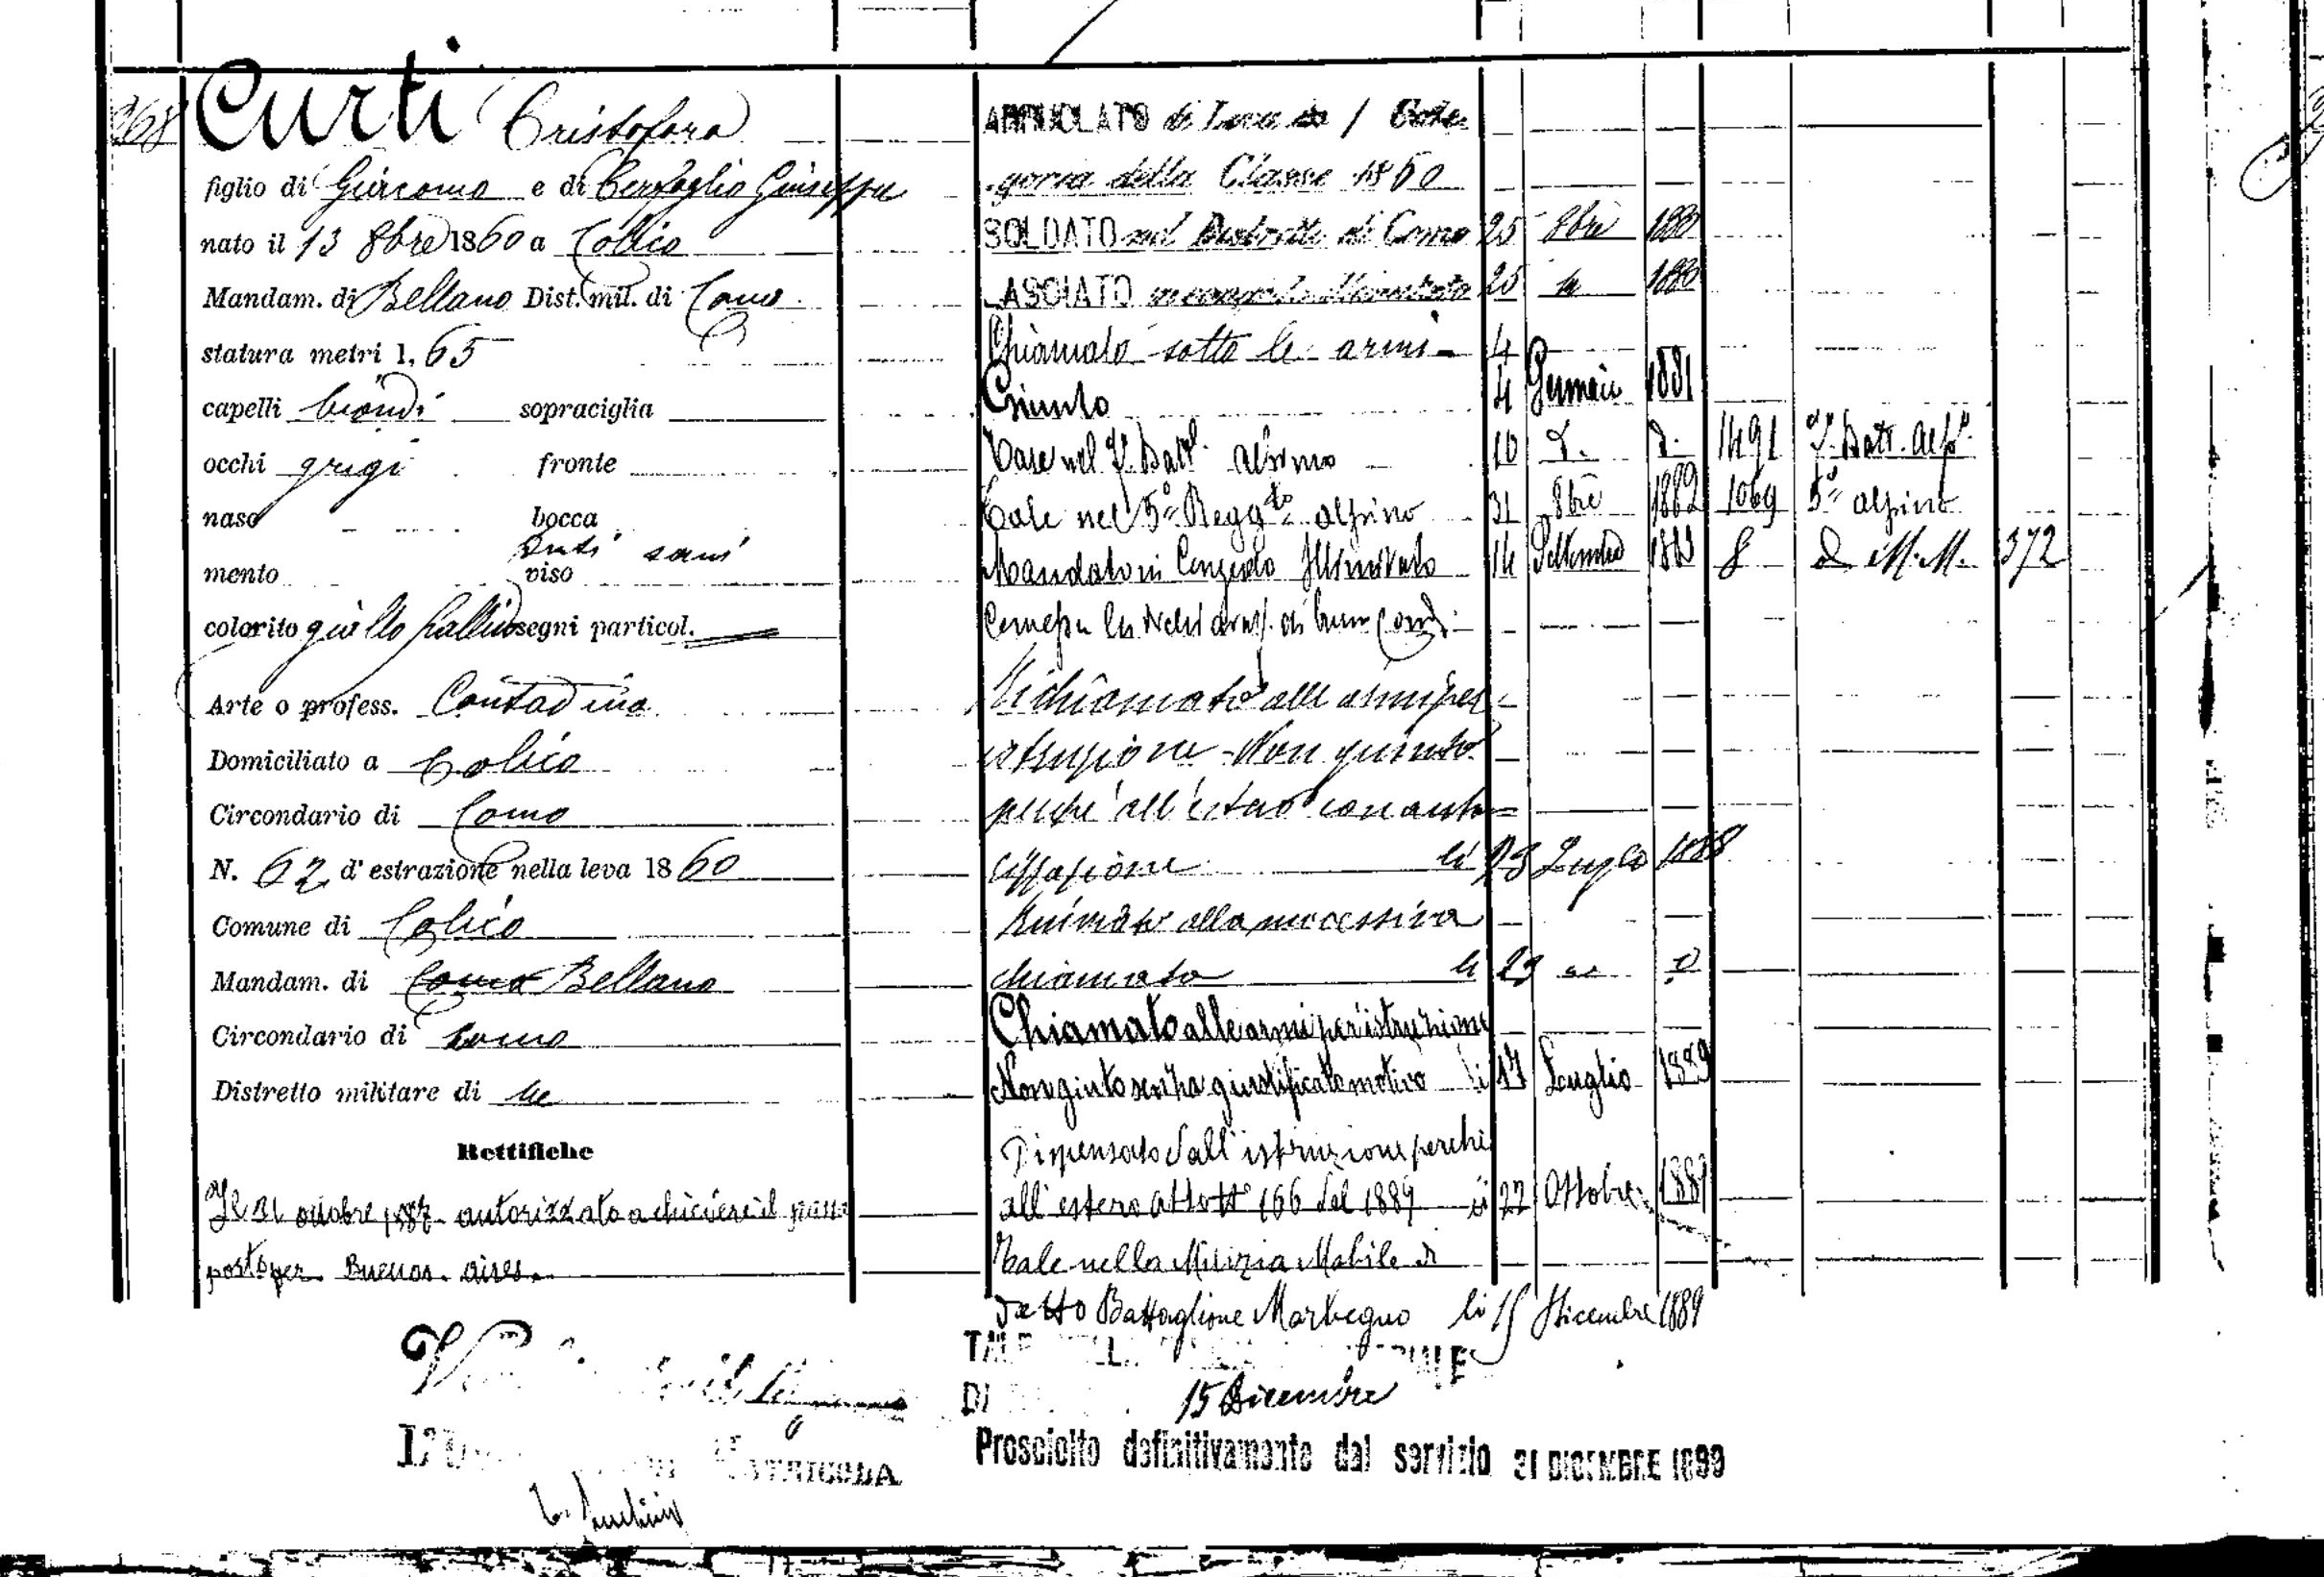 368 Curti Cristoforo
figlio di Giacomo e di Giuseppa
nato il 13 8bre 1860 a Colico
Mandam. di Bellano Dist. mil. di Como
statura metri 1,65
capelli biondi sopraciglia
occhi grigi fronte
naso bocca
denti sani
mento viso
colorito giallo pallido segni particol.
Arte o profess. Contadino
Domiciliato a Colico
Circondario di Como
N. 62 d'estrazione nella leva 1860
Comune di Colico
Mandam. di Como Bellano
Circondario di Como
Distretto militare di
Rettifiche
Il 31 ottobre 1887 autorizzato a chiedere il passa
porto per Buenos-aires.
MATRICOLA
ARRUOLATO di Leva 1 Cate
goria della Classe 1860
SOLDATO nel Distretto di Como 25 8bre 1880
LASCIATO in congedo illimitato 25 1880
Chiamato sotto le armi 4
Giunto 4 Gennaio 1881
Tale nel Batt. alpino 10 D. D. 1491 Batt. Alp.
Tale nel 5° Reggto alpino 31 8bre 1882 1069 5° alpino
Mandato in Congedo Illimitato 14 Settembre 1883 8 M.M. 372
di buona cond.
Richiamato alle armi per
istruzione - Non giunto
perchè all'estero con auto=
rizzazione li 23 Luglio 1888
Rinviato alla successiva
chiamata li 29
Chiamato alle armi per istruzione
Non giunto senza giustificato motivo li 17 Luglio 1889
Dispensato dall'istruzione perchè
all'estero Atto N° 166 del 1889 li 27 Ottobre 1889
Tale nella Milizia Mobile
detto Battaglione Morbegno li 15 Dicembre 1889
DI 15 Dicembre
Prosciolto definitivamente dal servizio 31 DICEMBRE 1899